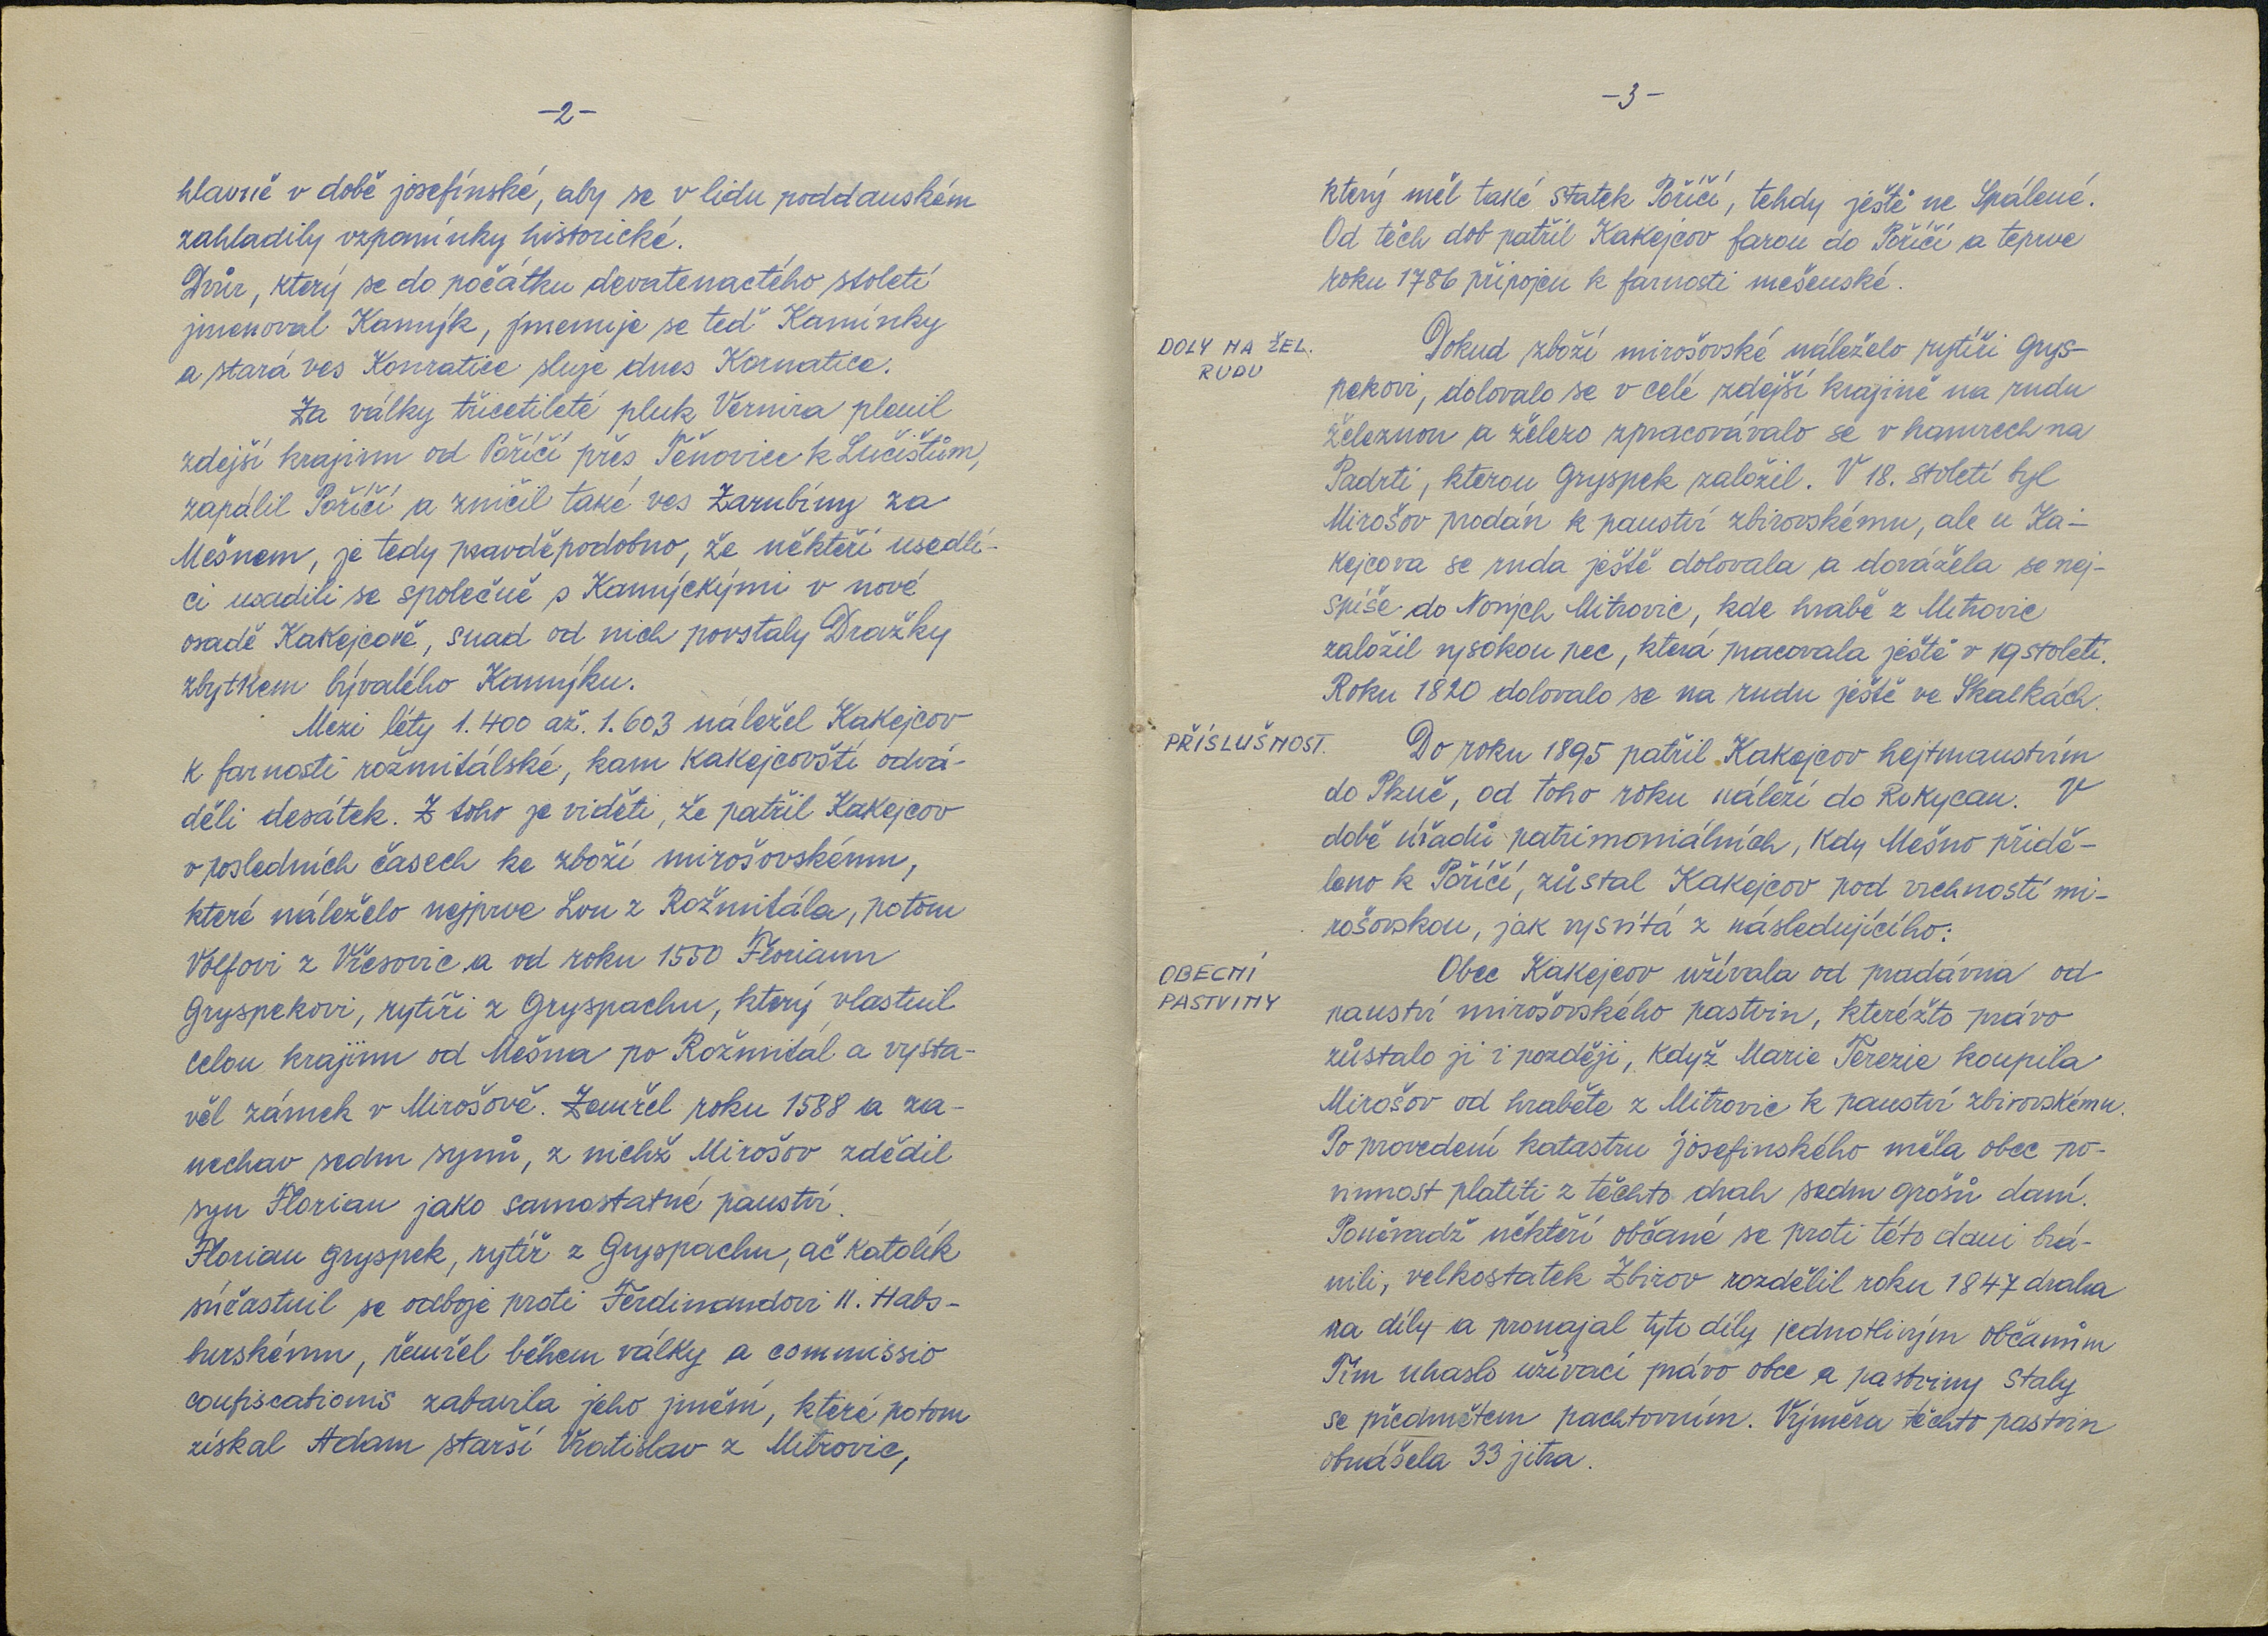 -2-
hlavně v době josefínské, aby se v lidu poddanském
zahladily vzpomínky historické.
Dvůr, který se do počátku devatenactého století
jmenoval Kamýk, jmenuje se teď Kamínky
a stará ves Konratice sluje dnes Kornatice.
Za války třicetileté pluk Vernira plenil
zdejší krajinu od Poříčí přes Těnovice k Lučištům,
zapálil Poříčí a zničil také ves Zarubíny za
Mešnem, je tedy pravděpodobno, že někteří usedlí-
ci usadili se společně s Kamýckými v nové
osadě Kakejcově, snad od nich povstaly Dražky
zbytkem bývalého Kamýku.
Mezi léty 1.400 až. 1.603 náležel Kakejcov
k farnosti rožmitálské, kam Kakejcovští odvá-
děli desátek. Z toho je viděti, že patřil Kakejcov
v posledních časech ke zboží mirošovskému,
které náleželo nejprve Lvu z Rožmitála, potom
Volfovi z Vřesovic a od roku 1550 Florianu
Gryspekovi, rytíři z Gryspachu, který vlastnil
celou krajinu od Mešna po Rožmitál a vysta-
věl zámek v Mirošově. Zemřel roku 1588 a za-
nechav sedm synů, z nichž Mirošov zdědil
syn Florian jako samostatné panství.
Florian Gryspek, rytíř z Gryspachu, ač katolík
súčastnil se odboje proti Ferdinandovi II. Habs-
burskému, zemřel během války a commissio
confiscationis zabavila jeho jmění, které potom
získal Adam starší Vratislav z Mitrovic,
-3-
který měl také statek Poříčí, tehdy ještě ne Spálené.
Od těch dob patřil Kakejcov farou do Poříčí a teprve
roku 1786 připojen k farnosti mešenské.
DOLY NA ŽEL.
RUDU
Dokud zboží mirošovské náleželo rytíři Grys-
pekovi, dolovalo se v celé zdejší krajině na rudu
železnou a železo zpracovávalo se v hamrech na
Padrti, kterou Gryspek založil. V 18. století byl
Mirošov prodán k panství zbirovskému, ale u Ka-
kejcova se ruda ještě dolovala a dovážela se nej-
spíše do Nových Mitrovic, kde hrabě z Mitrovic
založil vysokou pec, která pracovala ještě v 19 století.
Roku 1820 dolovalo se na rudu ještě ve Skalkách.
PŘÍSLUŠNOST.
Do roku 1895 patřil Kakejcov hejtmanstvím
do Plzně, od toho roku náleží do Rokycan. V
době úřadů patrimoniálních, kdy Mešno přidě-
leno k Poříčí, zůstal Kakejcov pod vrchností mi-
rošovskou, jak vysvítá z následujícího:
OBECNÍ
PASTVINY
Obec Kakejcov užívala od pradávna od
panství mirošovského pastvin, kteréžto právo
zůstalo jí i později, když Marie Terezie koupila
Mirošov od hraběte z Mitrovic k panství zbirovskému.
Po provedení katastru josefinského měla obec po-
vinnost platiti z těchto drah sedm grošů daní.
Poněvadž někteří občané se proti této dani brá-
nili, velkostatek Zbirov rozdělil roku 1847 draha
na díly a pronajal tyto díly jednotlivým občanům
Tím uhaslo užívací právo obce a pastviny staly
se předmětem pachtovním. Výměra těchto pastvin
obnášela 33 jitra.